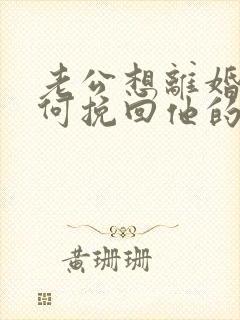 老公想離婚
何挽回他的
黃珊珊